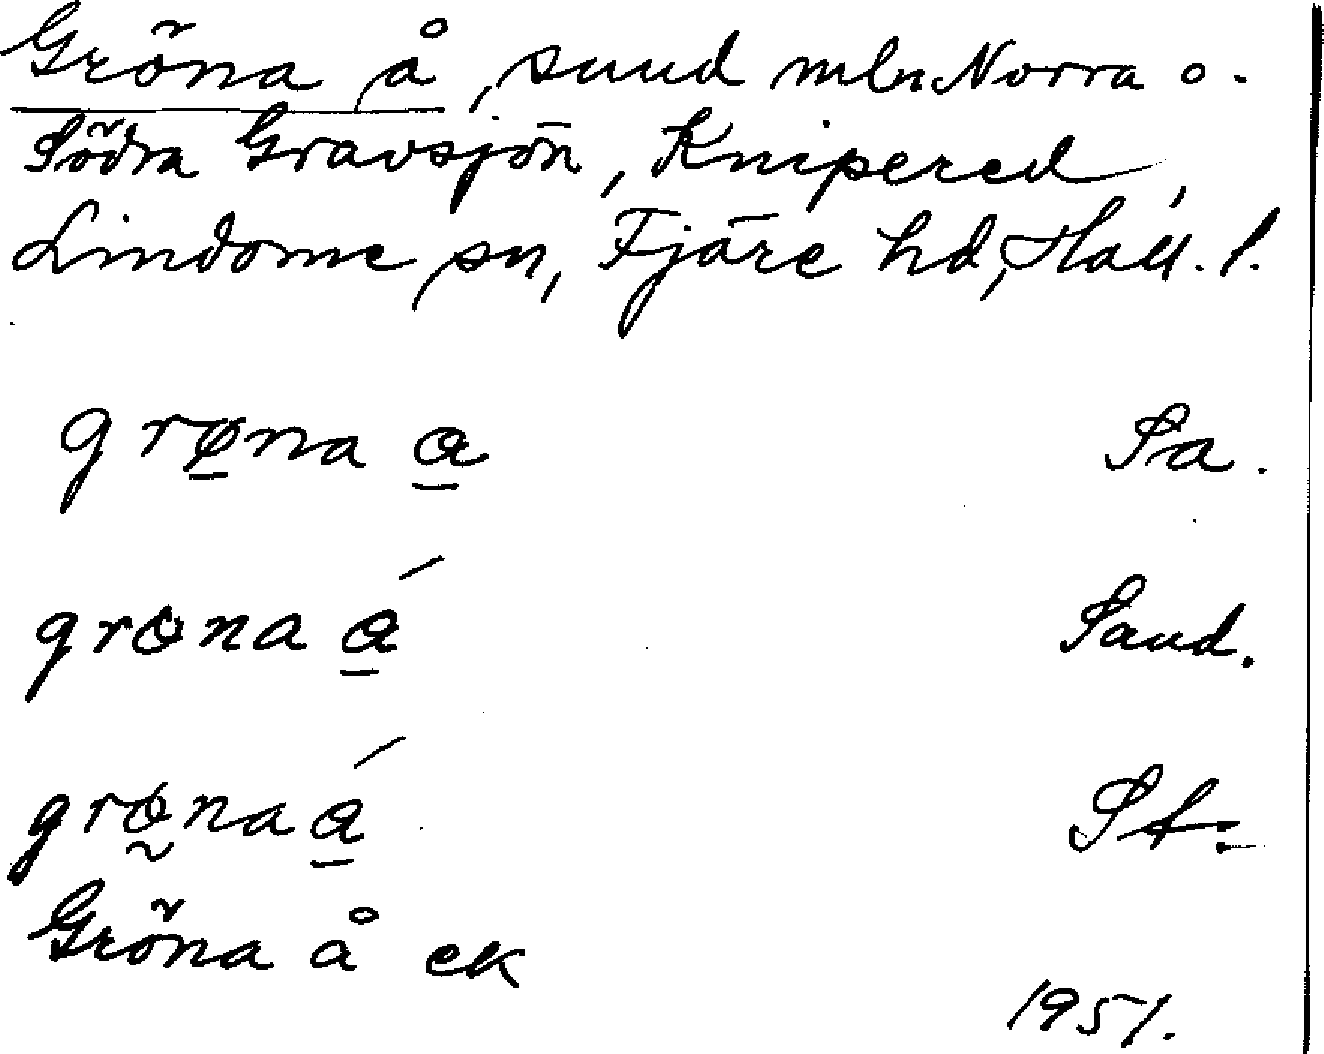 Gröna å, sund mln Norra o.
Södra Gravsjön, Knipered,
Lindome sn, Fjäre hd, Hall. l.
grøna a Sa.
grona á Sand.
grøna á St.
Gröna å ek
1951.